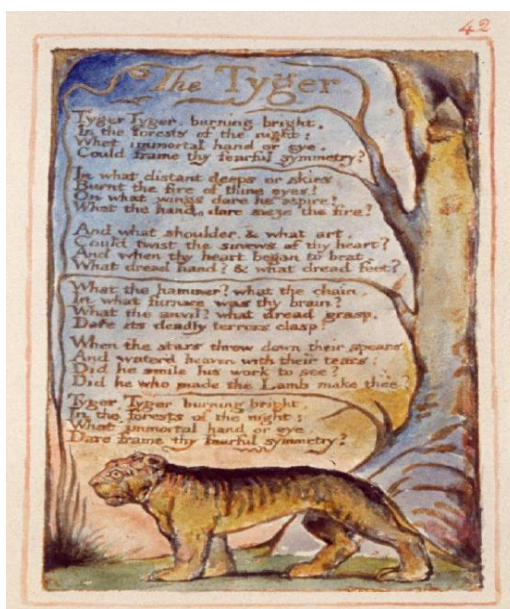 42
The Tyger
Tyger Tyger, burning bright,
In the forests of the night:
What immortal hand or eye.
Could frame thy fearful symmetry?
In what distant deeps or skies
Burnt the fire of thine eyes!
On what wings dare he aspire!
What the hand, dare sieze the fire?
And what shoulder, & what art,
Could twist the sinews of thy heart?
And when thy heart began to beat,
What dread hand? & what dread feet?
What the hammer? what the chain,
In what furnace was thy brain?
What the anvil? what dread grasp,
Dare its deadly terrors clasp!
When the stars threw down their spears
And water'd heaven with their tears:
Did he smile his work to see?
Did he who made the Lamb make thee?
Tyger Tyger burning bright,
In the forests of the night:
What immortal hand or eye
Dare frame thy fearful symmetry?